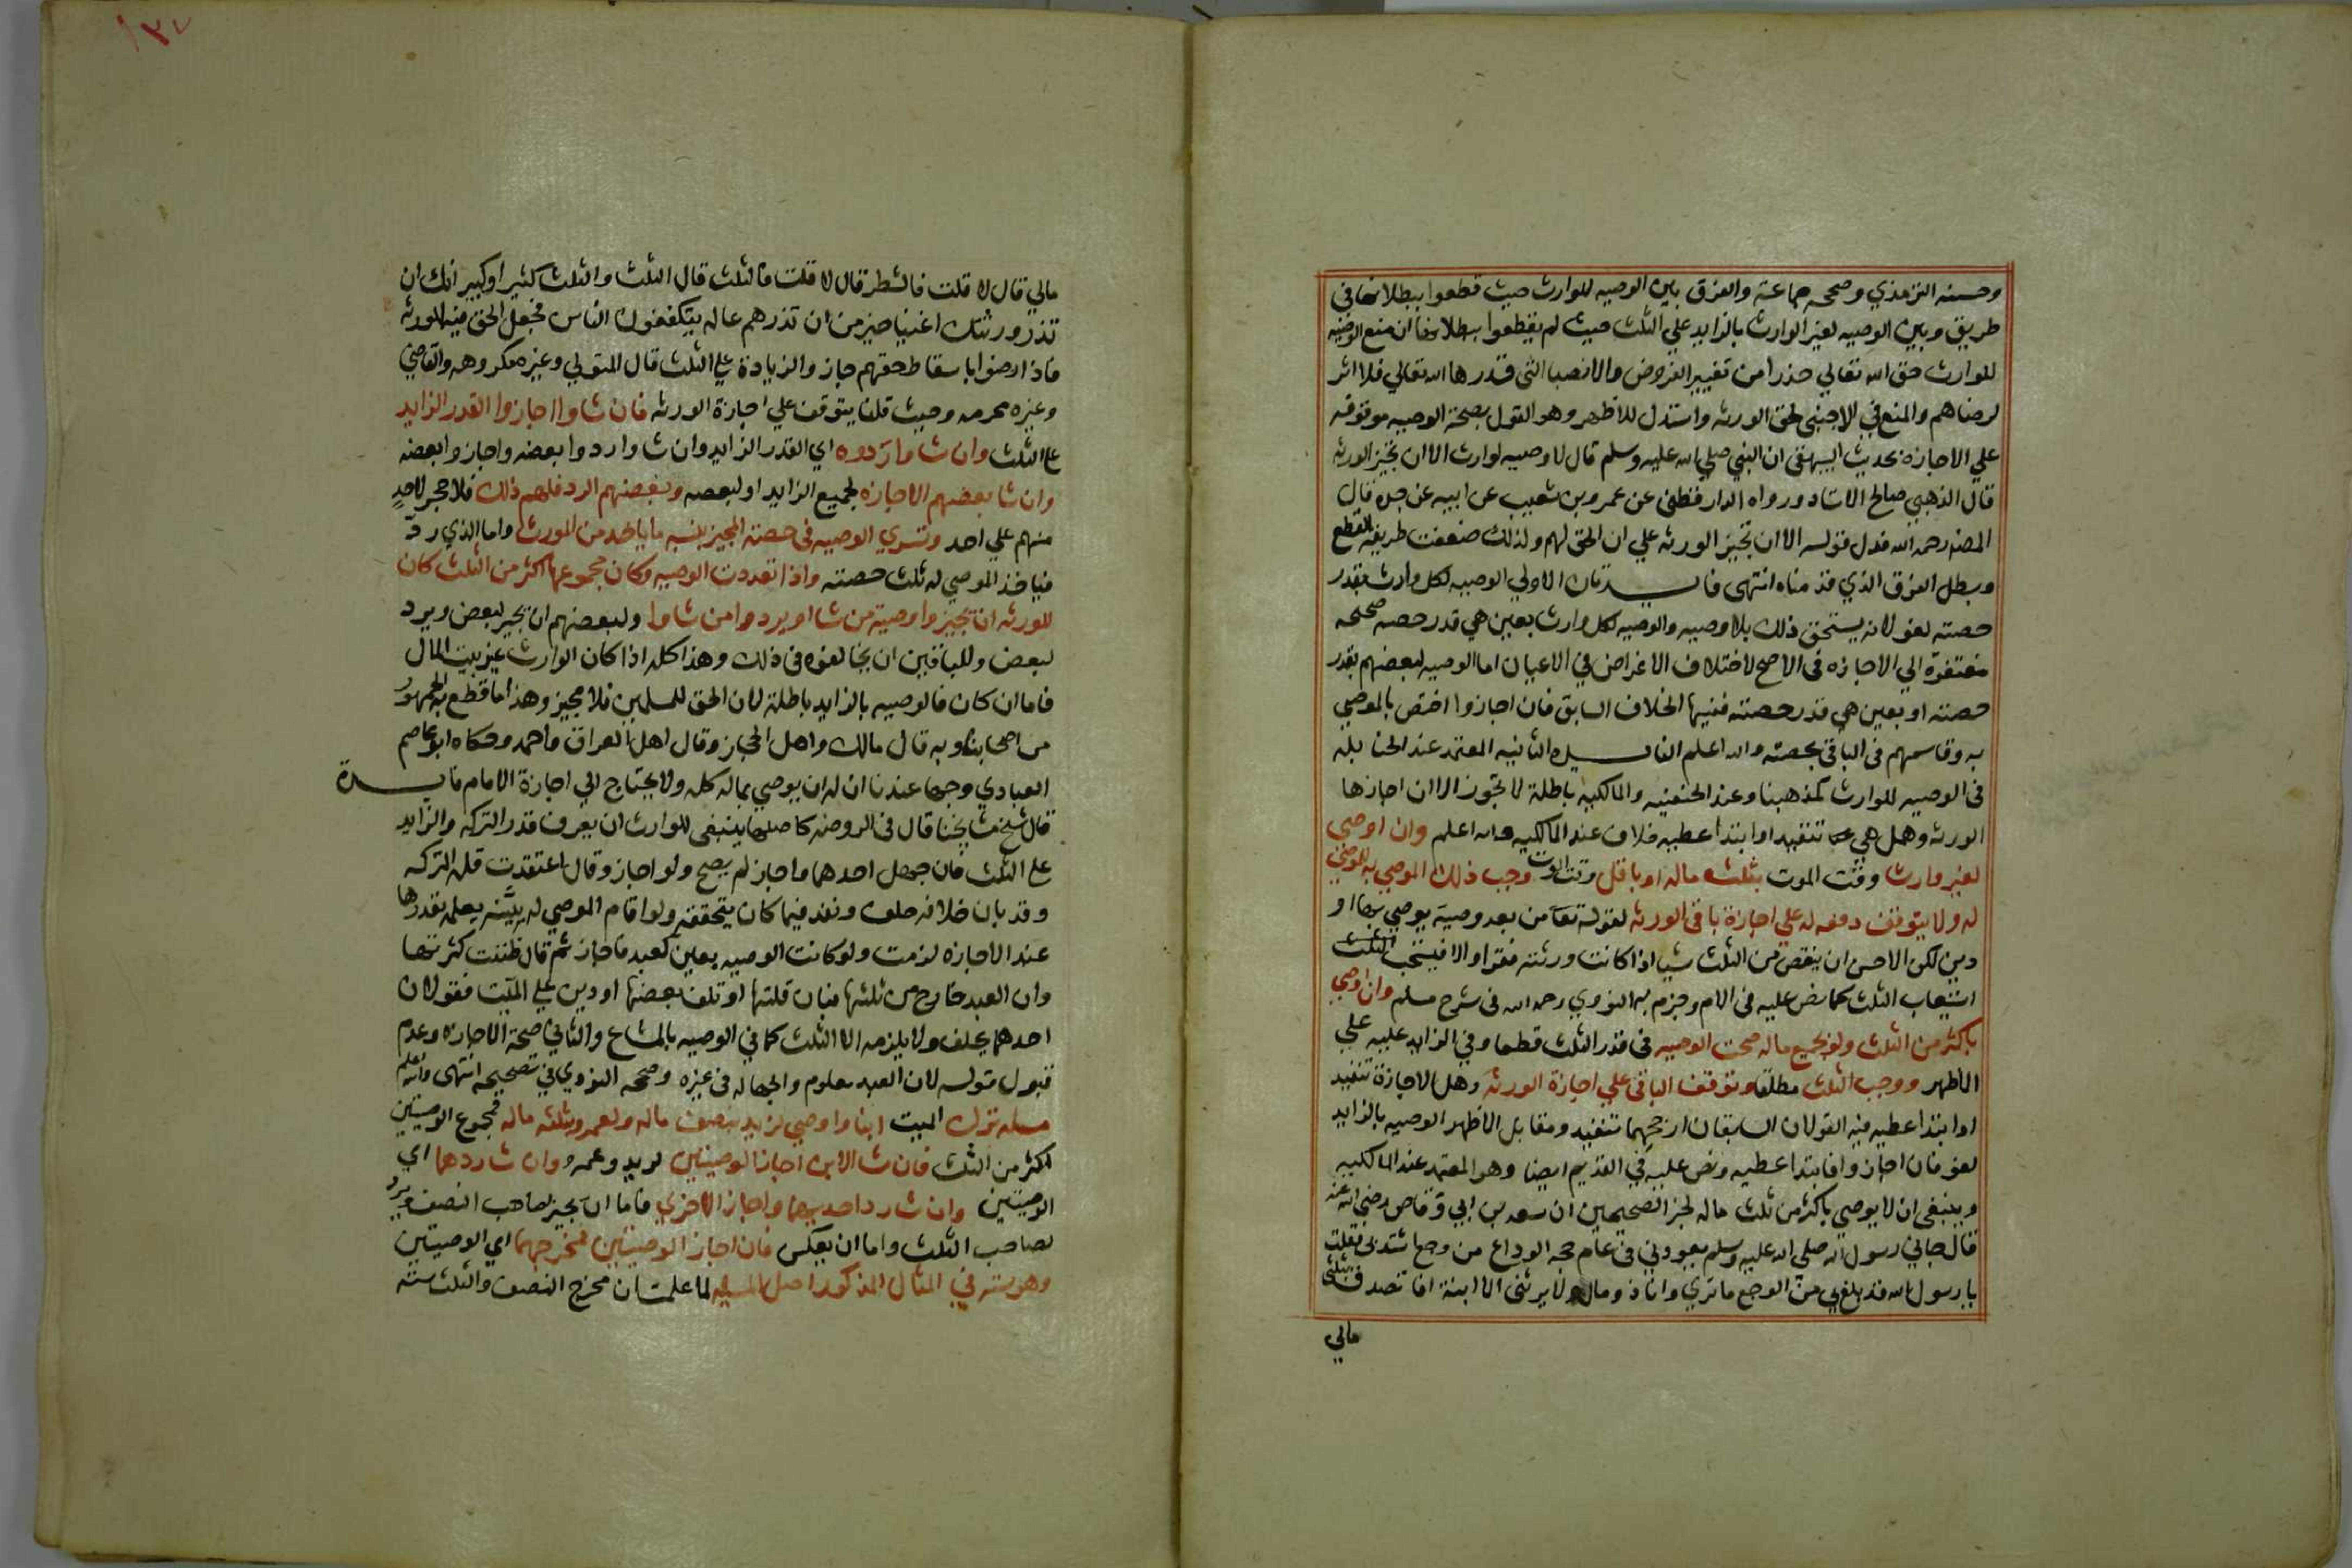 وحسنه الترمذي وصححه جماعة والفرق بين الوصيه للوارث حيث قطعوا ببطلانها في
طريق وبين الوصيه لغير الوارث بالزايد علي الثلث حيث لم يقطعوا ببطلانها ان منع الوصيه
للوارث حق الله تعالي حذرا من تغيير الفروض والانصبا التي قدرها الله تعالي فلا اثر
لرضاهم والمنع في الاجنبي لحق الورثه واستدل للاظهر وهو القول بصحة الوصيه موقوفه
علي الاجازه بحديث البيهقي ان النبي صلي الله عليه وسلم قال لا وصيه لوارث الا ان تجيز الورثه
قال الذهبي صالح الاسناد ورواه الدارقطني عن عمرو بن شعيب عن ابيه عن جده قال
المصنف رحمه الله فدل قوله الا ان تجيز الورثه علي ان الحق لهم ولذلك ضعفت طريقة القطع
وبطل الفرق الذي قدمناه انتهى فايدتان الاولي الوصيه لكل وارث بقدر
حصته لغو لانه يستحق ذلك بلا وصيه والوصيه لكل وارث بعين هي قدر حصته صحيحه
مفتقرة الي الاجازه في الاصح لاختلاف الاغراض في الاعيان اما الوصيه لبعضهم بقدر
حصته او بعين هي قدر حصته ففيها الخلاف السابق فان اجازوا اختص بالموصي
به وقاسمهم في الباقي بحصته والله اعلم الفايده الثانيه المعتمد عند الحنابله
في الوصيه للوارث كمذهبنا وعند الحنفيه والمالكيه باطلة لا تجوز الا ان اجازها
الورثه وهل هي تنفيذ او ابتدا عطيه خلاف عند المالكيه والله اعلم وان اوصى
لغير وارث وقت الموت بثلث ماله او باقل وقت الموت وجب ذلك الموصي به للموصي
له ولا يتوقف دفعه له علي اجازة باقي الورثه لقوله تعا من بعد وصية يوصي بها او
دين لكن الاحسن ان ينقص من الثلث شيا اذا كانت ورثته فقرا والا فيستحب الثلث
استيعاب الثلث كما نص عليه في الام وجزم به النووي رحمه الله في شرح مسلم وان اوصي
باكثر من الثلث ولو بجميع ماله صحت الوصيه في قدر الثلث قطعا وفي الزايد عليه علي
الاظهر ووجب الثلث مطلقا وتوقف الباقي علي اجازة الورثه وهل الاجازة تنفيذ
او ابتدا عطيه فيه القولان السابقان ارجحهما تنفيذ ومقابل الاظهر الوصيه بالزايد
لغو فان اجازوا فابتدا عطيه ونص عليه في القديم ايضا وهو المعتمد عند المالكيه
وينبغي ان لا يوصي باكثر من ثلث ماله لخبر الصحيحين ان سعد بن ابي وقاص رضي الله عنه
قال جاني رسول الله صلي الله عليه وسلم يعودني في عام حجه الوداع من وجع اشتد بي فقلت
يا رسول الله قد بلغ بي من الوجع ما تري وانا ذو مال ولا يرثني الا ابنة افاتصدق بثلثي
مالي
مالي قال لا قلت فالشطر قال لا قلت فالثلث قال الثلث والثلث كثير او كبير انك ان
تذر ورثتك اغنيا خير من ان تذرهم عاله يتكففون الناس فجعل الحق فيه للورثه
فاذا رضوا باسقاط حقهم جاز والزيادة علي الثلث قال المتولي وغيره مكروهه والقاضي
وغيره محرمه وحيث قلنا يتوقف علي اجازة الورثه فان شاوا اجازوا القدر الزايد
علي الثلث وان شاوا ردوه اي القدر الزايد وان شاوا ردوا بعضه واجازوا بعضه
وان شا بعضهم الاجازه لجميع الزايد او لبعضه وبعضهم الرد فلهم ذلك فلا حجر لاحدٍ
منهم علي احد وتسري الوصيه في حصة المجيز بنسبه ما ياخذه من المورث واما الذي ردّ
فياخذ الموصي له ثلث حصته واذا تعددت الوصيه وكان مجموعها اكثر من الثلث كان
للورثه ان تجيزوا وصية من شاا ويردوا من شاوا ولبعضهم ان يجيز لبعض ويرد
لبعض وللباقين ان يخالفوه في ذلك وهذا كله اذا كان الوارث غير بيت المال
فاما ان كان فالوصيه بالزايد باطلة لان الحق للمسلمين فلا مجيز وهذا ما قطع به الجمهور
من اصحابنا وبه قال مالك واهل الحجاز وقال اهل العراق واحمد وحكاه ابو عاصم
العبادي وجها عندنا ان له ان يوصي بماله كله ولا يحتاج الي اجازة الامام فايدة
قال شيخ مشايخنا قال في الروضه كاصلها ينبغي للوارث ان يعرف قدر التركه والزايد
علي الثلث فان جهل احدهما واجاز لم يصح ولو اجاز وقال اعتقدت قله التركه
وقد بان خلافه حلف ونفذ فيما كان يتحققه ولو اقام الموصي له بيّنه بعلمه بقدرها
عند الاجازه لزمت ولو كانت الوصيه بعين كعبد فاجاز ثم قال ظننت كثرتها
وان العبد خارج من ثلثها فبان قلتها او تلف بعضها او دين علي الميّت فقولان
احدهما يحلف ولا يلزمه الا الثلث كما في الوصيه بالمشاع والثاني صحة الاجازه وعدم
قبول قوله لان العبد معلوم والجهاله في غيره وصححه النووي في تصحيحه انتهى والله اعلم
مسله ترك الميت ابنا واوصي لزيد بنصف ماله ولعمرو بثلث ماله فمجوع الوصيتين
اكثر من الثلث فان شا الابن اجاز الوصيتين لزيد وعمرو وان شا ردهما اي
الوصيتين وان شا رد احديهما واجاز الاخري فاما ان يجيز لصاحب النصف ويرد
لصاحب الثلث واما ان يعكس فان اجاز الوصيتين فمخرجهما اي الوصيتين
وهو سته في المثال المذكور اصل المسله لما علمت ان مخرج النصف والثلث سته